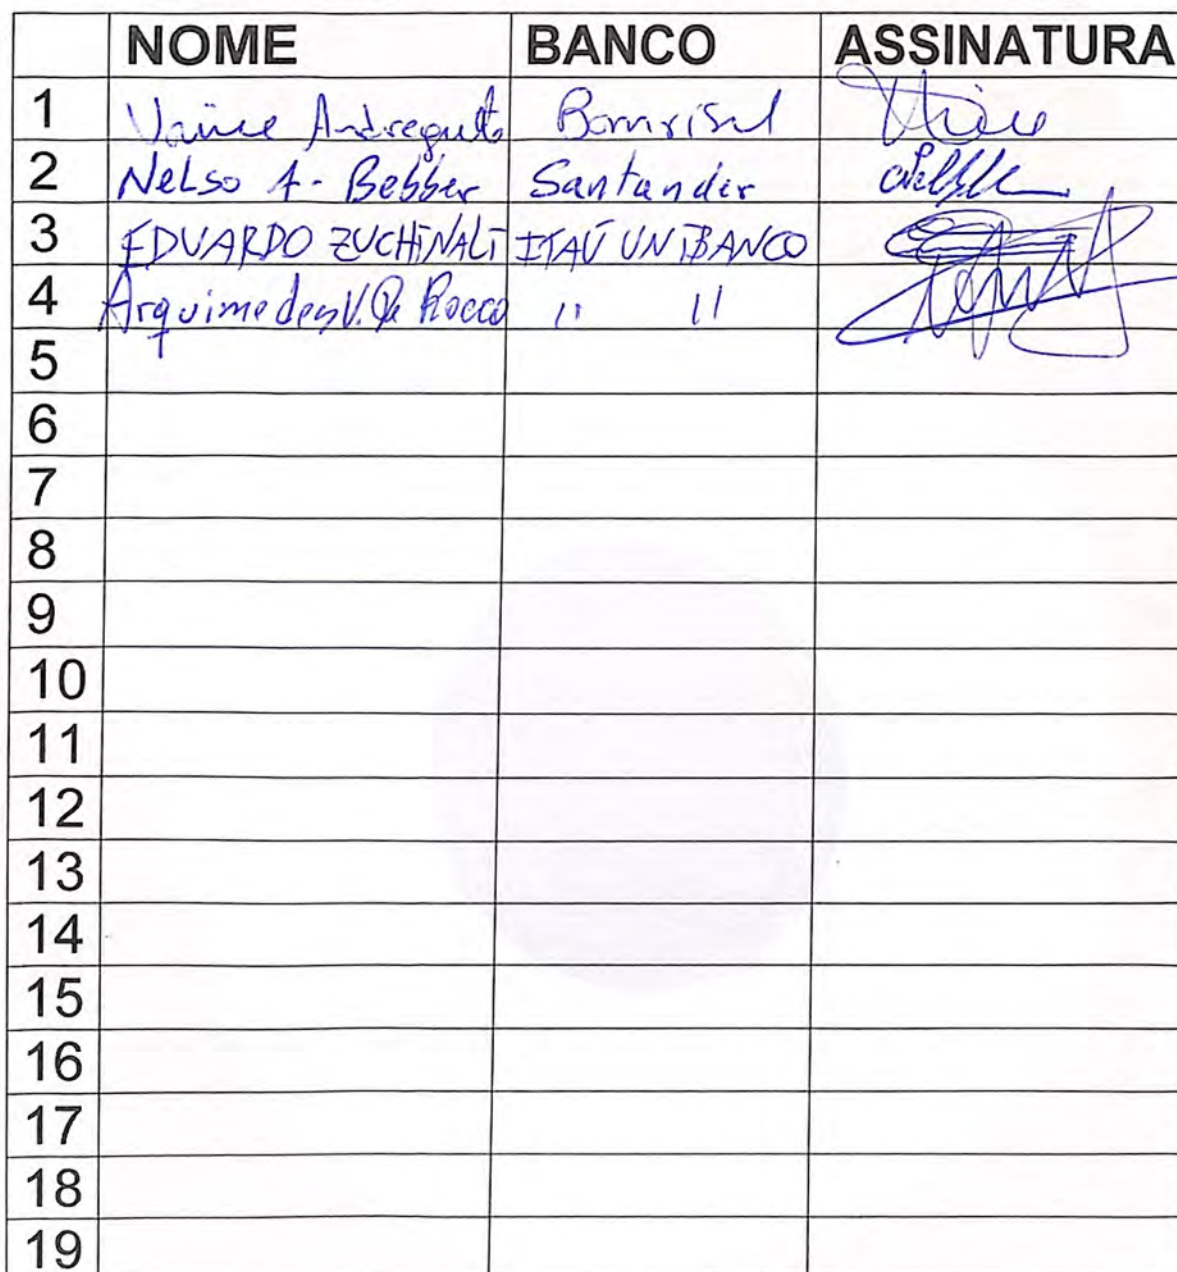 NOME BANCO ASSINATURA
1 Banrisul
2 Nelso A. Bebber Santander
3 EDUARDO ZUCHINALI ITAÚ UNIBANCO
4 Arquimedes V. Rocco " "
5
6
7
8
9
10
11
12
13
14
15
16
17
18
19